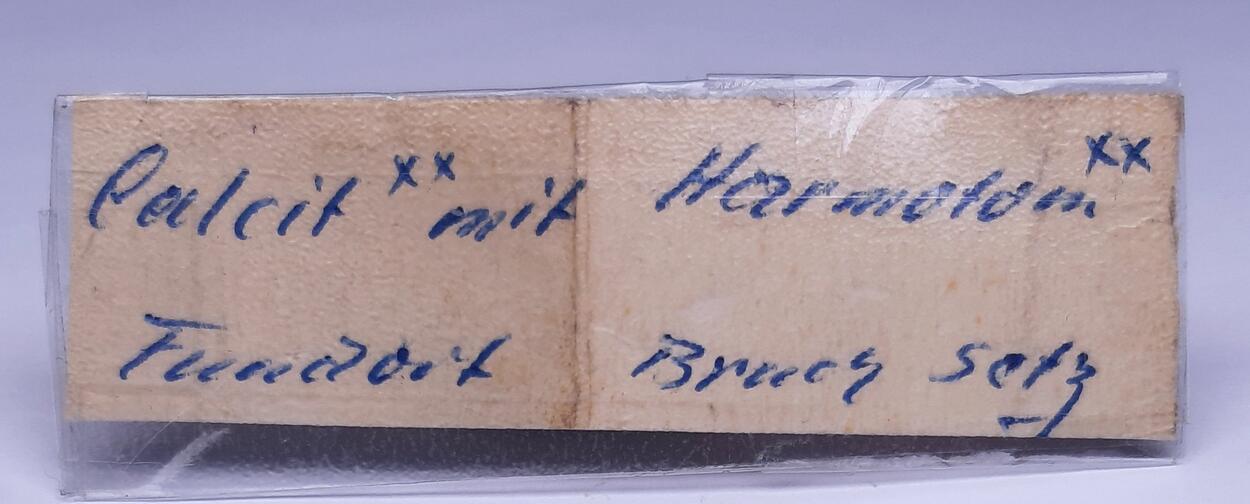 Calcit xx mit Harmotom xx
Fundort Bruch Setz